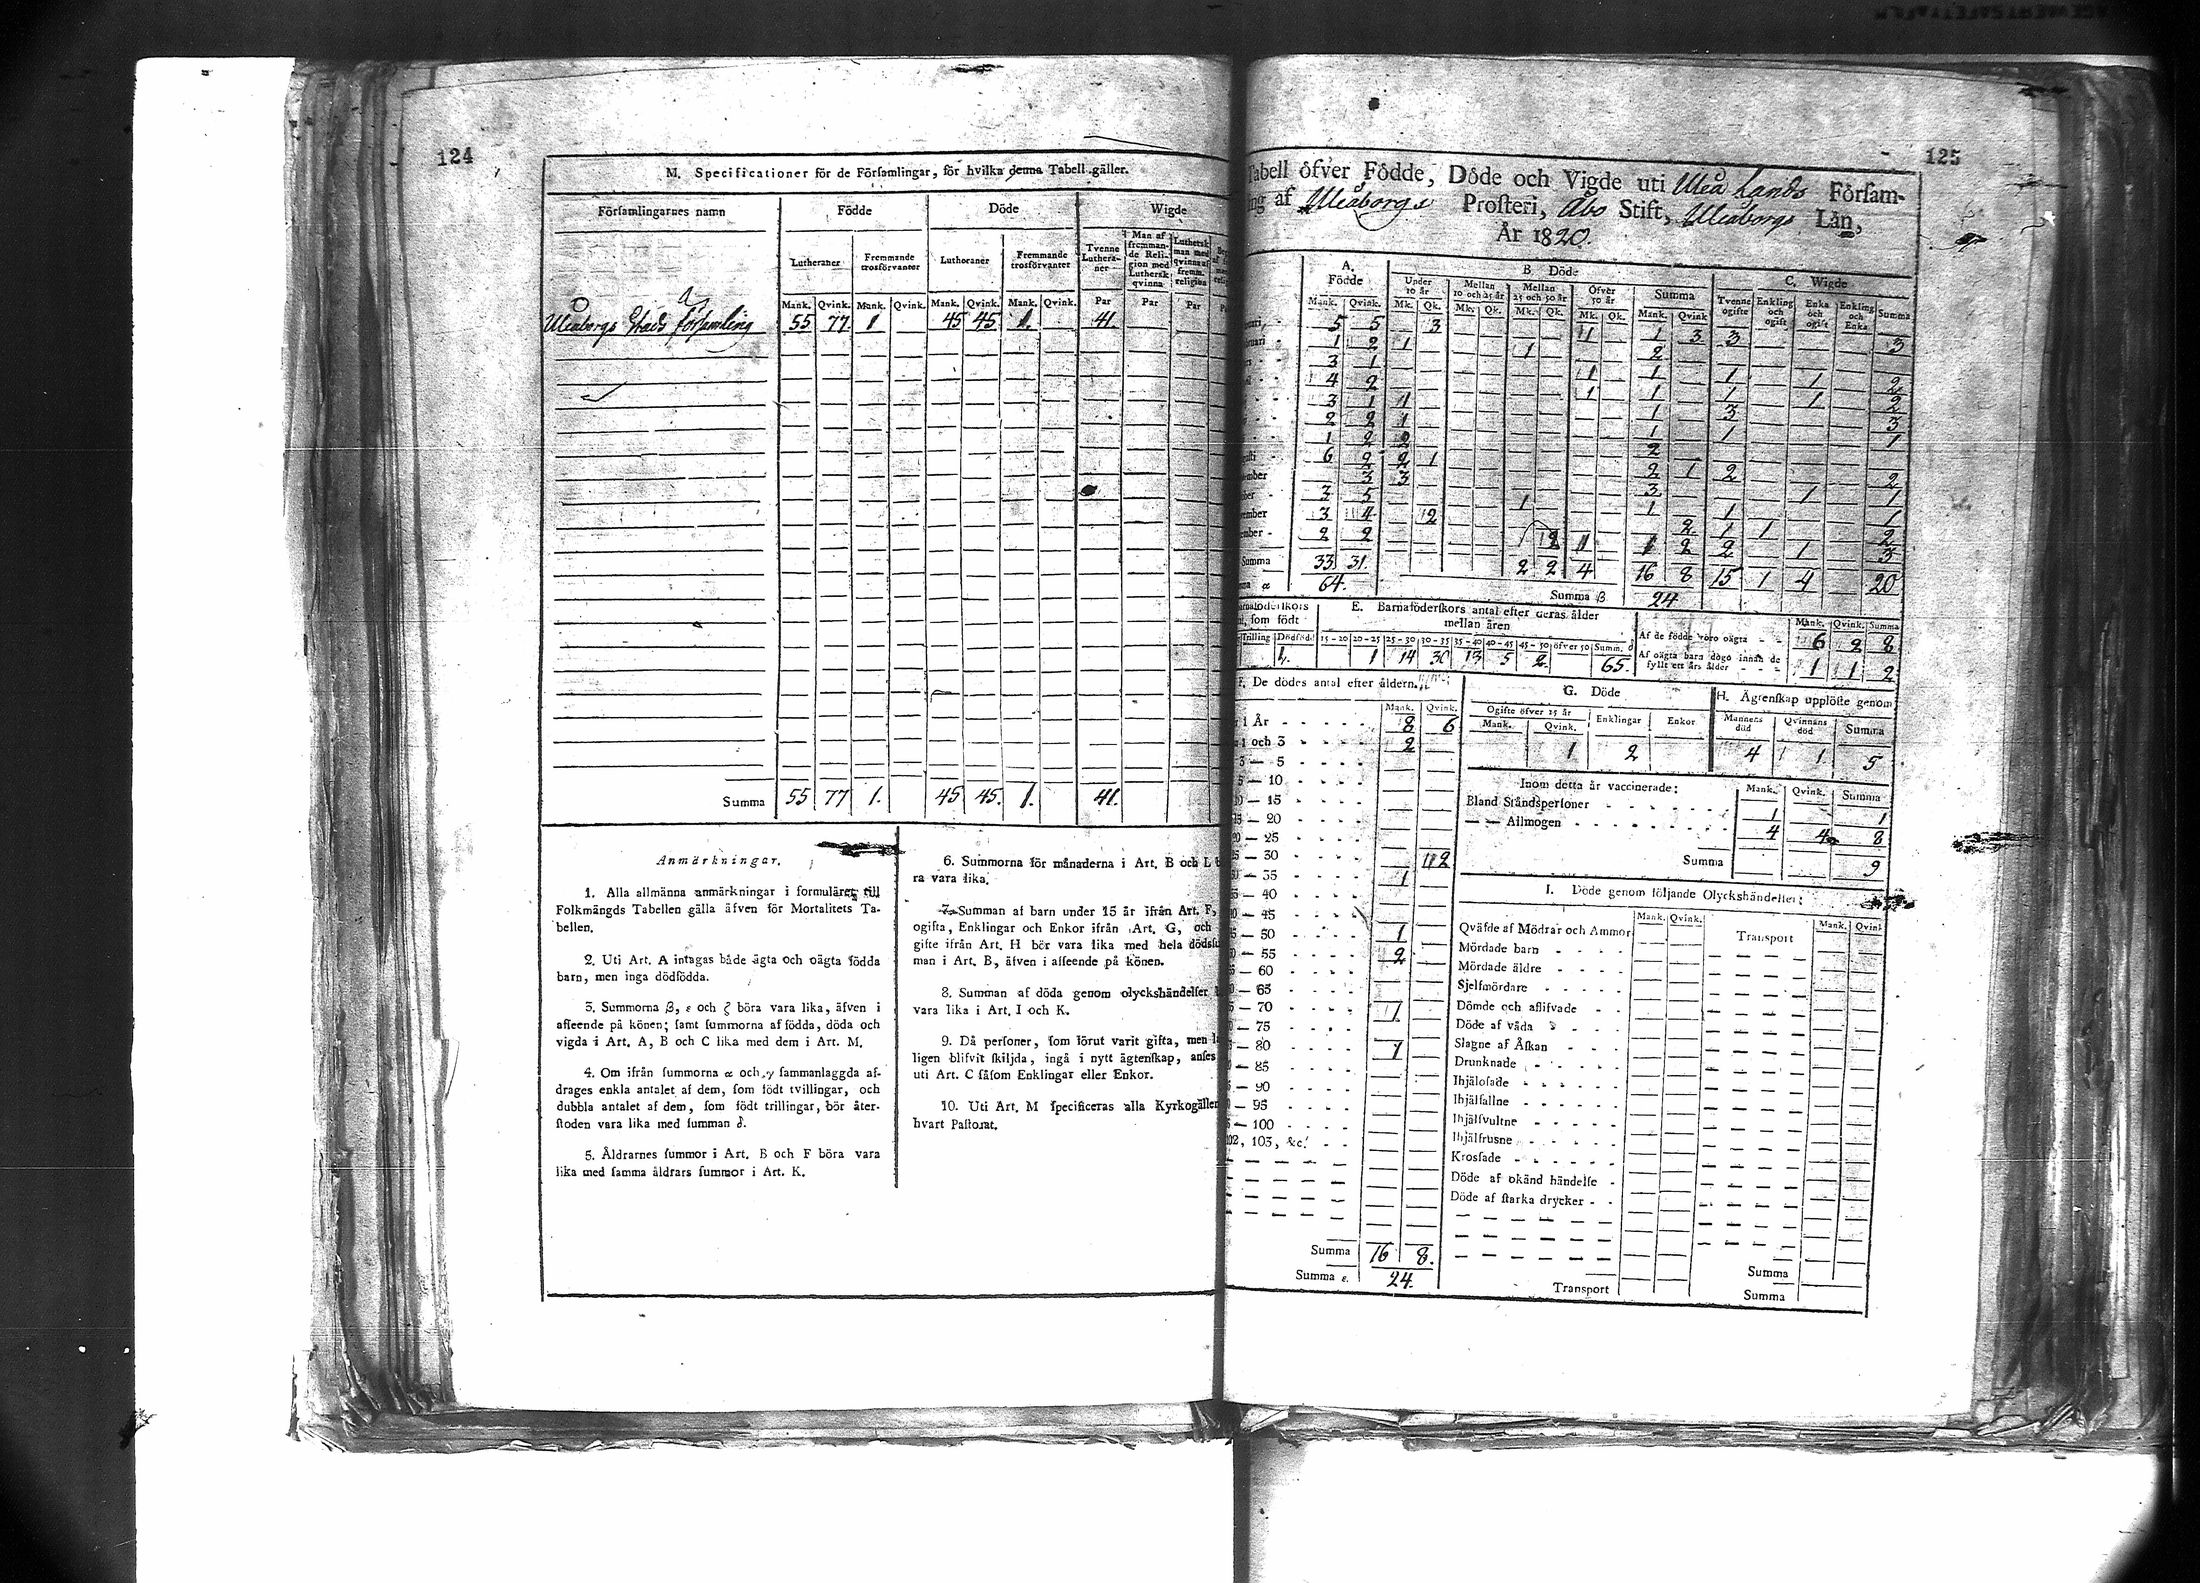 124
M. Specificationer för de Förſamlingar, för hvilka denna Tabell gäller.
Förſamlingarnes namn
Födde
Döde
Wigde
Lutheraner
Fremmande trosförvanter
Lutheraner
Fremmande trosförvanter
Tvenne Lutheraner
Man af fremmande Religion med Lutherſk qvinna
Lutherſk man med qvinna af fremm. religion
Mank. Qvink. Mank. Qvink. Mank. Qvink. Mank. Qvink. Par Par Par
Uleåborgs Stads församling 55 77 1 45 45 1. 41.
Summa 55 77 1. 45 45. 1. 41.
Anmärkningar.
1. Alla allmänna anmärkningar i formuläret till
Folkmängds Tabellen gälla äfven för Mortalitets Ta-
bellen.
2. Uti Art. A intagas både ägta och oägta födda
barn, men inga dödfödda.
3. Summorna β, ε och ζ böra vara lika, äfven i
afſeende på könen; ſamt ſummorna af födda, döda och
vigda i Art. A, B och C lika med dem i Art. M.
4. Om ifrån ſummorna α och γ ſammanlaggda af-
drages enkla antalet af dem, ſom födt tvillingar, och
dubbla antalet af dem, ſom födt trillingar, bör åter-
ſtoden vara lika med ſumman δ.
5. Åldrarnes ſummor i Art. B och F böra vara
lika med ſamma åldrars ſummor i Art. K.
6. Summorna för månaderna i Art. B och L
ra vara lika.
7. Summan af barn under 15 år ifrån Art. F,
ogifta, Enklingar och Enkor ifrån Art. G, och
gifte ifrån Art. H bör vara lika med hela dödsſu
man i Art. B, äfven i afſeende på könen.
8. Summan af döda genom olyckshändelſer
vara lika i Art. I och K.
9. Då perſoner, ſom förut varit gifta, men
ligen blifvit ſkiljda, ingå i nytt ägtenſkap, anſes
uti Art. C ſåſom Enklingar eller Enkor.
10. Uti Art. M ſpecificeras alla Kyrkogällen
hvart Paſtorat.
125
Tabell öfver Födde, Döde och Vigde uti Uleå Lands Förſam-
ing af Uleåborgs Proſteri, Åbo Stift, Uleåborgs Län,
År 1820.
A. Födde
B Döde
C. Wigde
Under 10 år
Mellan 10 och 25 år
Mellan 25 och 50 år
Öfver 50 år
Summa
Tvenne ogifte
Enkling och ogift
Enka och ogift
Enkling och Enka
Summa
Mank. Qvink. Mk. Qk. Mk. Qk. Mk. Qk. Mk. Qk. Mank. Qvink
5 5 3 1 1 3 3 3
1 2 1 1 2
3 1 1 1 1 1 2
4 2 1 1 1 1 2
3 1 1 1 3 3
2 2 1 1 1 1
1 2 2 2
6 2 2 1 2 1 2 2
ember 3 3 3 1 1
ber 3 5 1 1 1 1
vember 3 4 2 2 1 1 2
ember 2 2 1 2 1 1 2 2 1 3
Summa 33 31. 2 2 4 16 8 15 1 4 20
64.
Summa β 24
E. Barnaföderſkors antal efter deras ålder
mellan åren
ſom födt
Trilling Dödfödd 15-20 20-25 25-30 30-35 35-40 40-45 45-50 öfver 50 Summ. δ
1. 1 14 30 13 5 2 65.
Mank. Qvink. Summa
Af de födde voro oägta 6 2 8
Af oägta barn dögo innan de
fyllt ett års ålder 1 1 2
F. De dödes antal efter åldern.
Mank. Qvink.
1 År 8 6
1 och 3 2
3 — 5
5 — 10
— 15
— 20
— 25
— 30 2
— 35 1
— 40
— 45
— 50 1
— 55 2
— 60
— 65
— 70 1
— 75
— 80 1
— 85
— 90
— 95
— 100
102, 103, &c.
Summa 16 8.
Summa ε. 24.
G. Döde
Ogifte öfver 15 år
Mank. Qvink. Enklingar Enkor
1 2
H. Ägtenſkap upplöſte genom
Mannens död
Qvinnans död
Summa
4 1 5
Inom detta år vaccinerade:
Mank. Qvink. Summa
Bland Ståndsperſoner 1 1
— — Allmogen 4 4 8
Summa 9
I. Döde genom följande Olyckshändelſer:
Mank. Qvink. Mank. Qvink
Qväfde af Mödrar och Ammor
Transport
Mördade barn
Mördade äldre
Sjelfmördare
Dömde och aflifvade
Döde af våda
Slagne af Åſkan
Drunknade
Ihjälofade
Ihjälfallne
Ihjälſvultne
Ihjälfrusne
Krosſade
Döde af okänd händelſe
Döde af ſtarka drycker
Summa
Transport
Summa